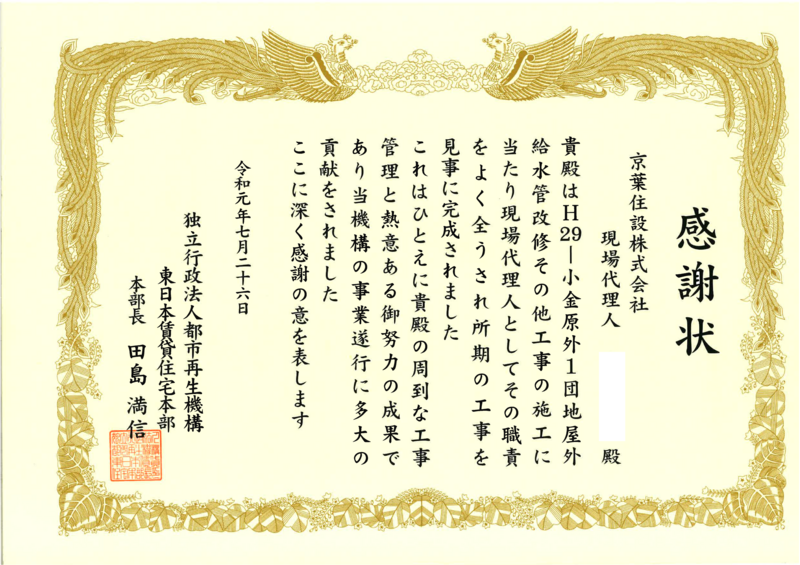 感謝状
京葉住設株式会社
現場代理人
殿
貴殿はH29―小金原外1団地屋外
給水管改修その他工事の施工に
当たり現場代理人としてその職責
をよく全うされ所期の工事を
見事に完成されました
これはひとえに貴殿の周到な工事
管理と熱意ある御努力の成果で
あり当機構の事業遂行に多大の
貢献をされました
ここに深く感謝の意を表します
令和元年七月二十六日
独立行政法人都市再生機構
東日本賃貸住宅本部
本部長 田島満信